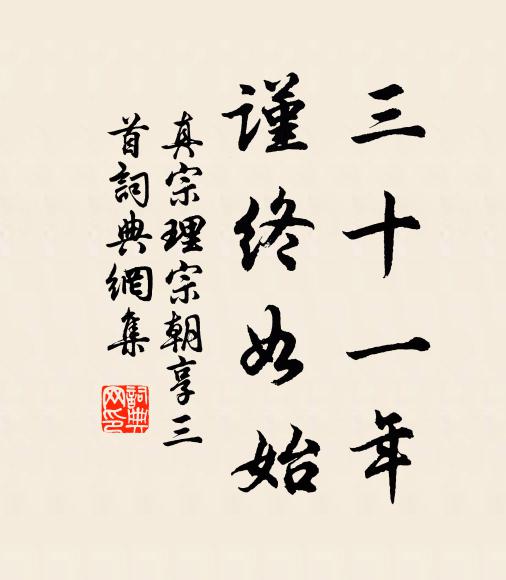 三十一年
謹終如始
真宗理宗朝享三
首詞典網集
詞典
网印